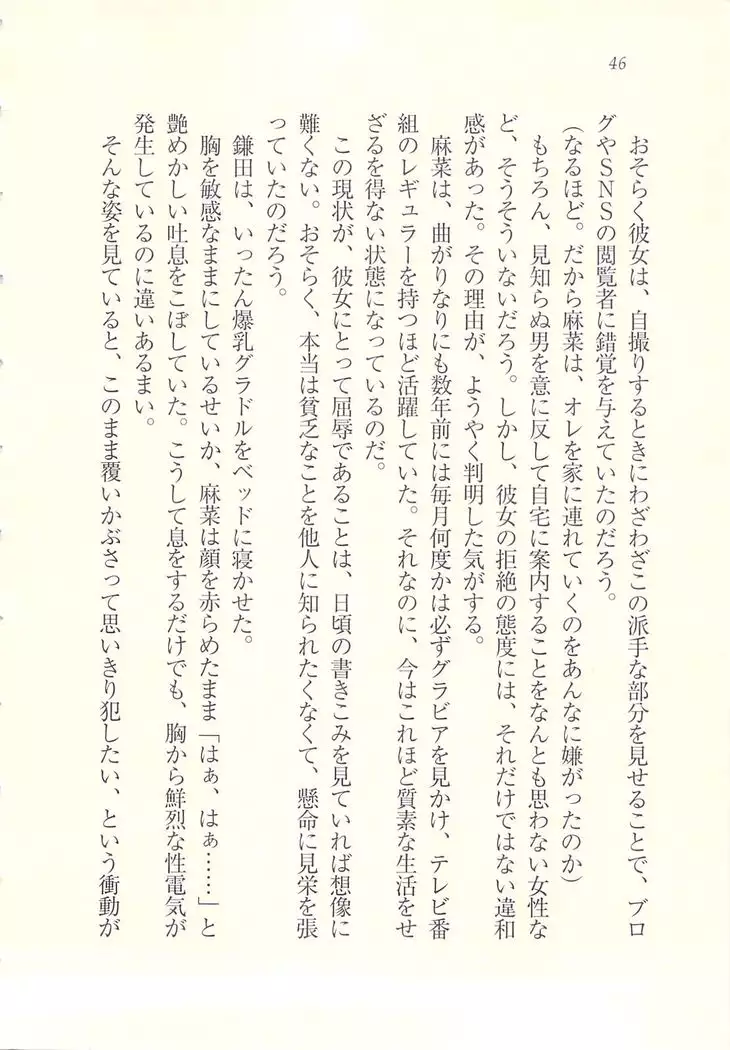 46
おそらく彼女は、自撮りするときにわざわざこの派手な部分を見せることで、ブロ
グやSNSの閲覧者に錯覚を与えていたのだろう。
(なるほど。だから麻菜は、オレを家に連れていくのをあんなに嫌がったのか)
もちろん、見知らぬ男を意に反して自宅に案内することをなんとも思わない女性な
ど、そうそういないだろう。しかし、彼女の拒絶の態度には、それだけではない違和
感があった。その理由が、ようやく判明した気がする。
麻菜は、曲がりなりにも数年前には毎月何度かは必ずグラビアを見かけ、テレビ番
組のレギュラーを持つほど活躍していた。それなのに、今はこれほど質素な生活をせ
ざるを得ない状態になっているのだ。
この現状が、彼女にとって屈辱であることは、日頃の書きこみを見ていれば想像に
難くない。おそらく、本当は貧乏なことを他人に知られたくなくて、懸命に見栄を張
っていたのだろう。
鎌田は、いったん爆乳グラドルをベッドに寝かせた。
胸を敏感なままにしているせいか、麻菜は顔を赤らめたまま「はぁ、はぁ……」と
艶めかしい吐息をこぼしていた。こうして息をするだけでも、胸から鮮烈な性電気が
発生しているのに違いあるまい。
そんな姿を見ていると、このまま覆いかぶさって思いきり犯したい、という衝動が